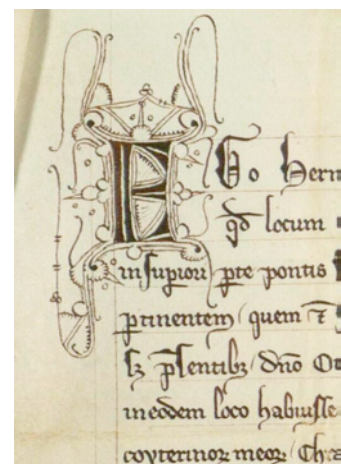 EGo Herm
qd locum
in supiori pte pontis
ptinentem quem
lz psentibz dno Ot
in eodem loco habuisse
coyterinoz meoz